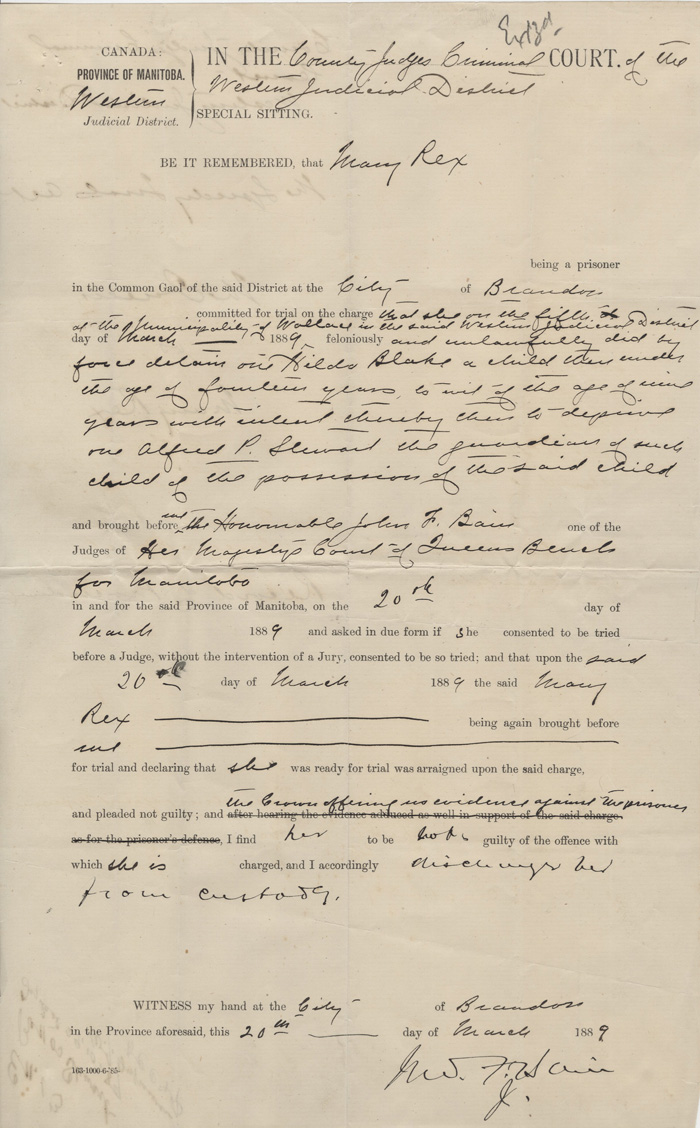 Ex^td.
CANADA:
PROVINCE OF MANITOBA.
Western
Judicial District.
IN THE County Judges Criminal COURT. of the
Western Judicial District
SPECIAL SITTING.
BE IT REMEMBERED, that Mary Rex
being a prisoner
in the Common Gaol of the said District at the City of Brandon
committed for trial on the charge that she on the fifth
at the Municipality of Wallace in the said Western Judicial District
day of March 1889, feloniously and unlawfully did by
force detain one Hilda Blake a child then under
the age of fourteen years, to wit of the age of nine
years with intent thereby then to deprive
one Alfred P. Stewart the guardian of such
child of the possession of the said child
and brought before me the Honourable John F. Bain one of the
Judges of Her Majesty's Court of Queens Bench
for Manitoba
in and for the said Province of Manitoba, on the 20th day of
March 1889 and asked in due form if she consented to be tried
before a Judge, without the intervention of a Jury, consented to be so tried; and that upon the said
20th day of March 1889 the said Mary
Rex being again brought before
me
for trial and declaring that she was ready for trial was arraigned upon the said charge,
the Crown offering no evidence against the prisoner
and pleaded not guilty; and after hearing the evidence adduced as well in support of the said charge.
as for the prisoner's defence, I find her to be not guilty of the offence with
which she is charged, and I accordingly discharge her
from custody.
WITNESS my hand at the City of Brandon
in the Province aforesaid, this 20th day of March 1889
Jno. F. Bain
J.
163-1000-6-'85-